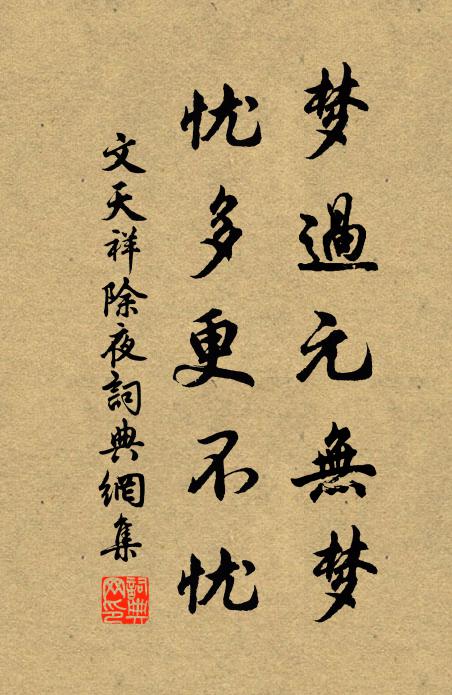 梦過元無梦
忧多更不忧
文天祥除夜詞典網集
詞典
网印